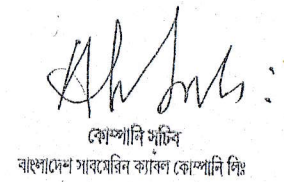 কোম্পানি সচিব
বাংলাদেশ সাবমেরিন ক্যাবল কোম্পানি লিঃ